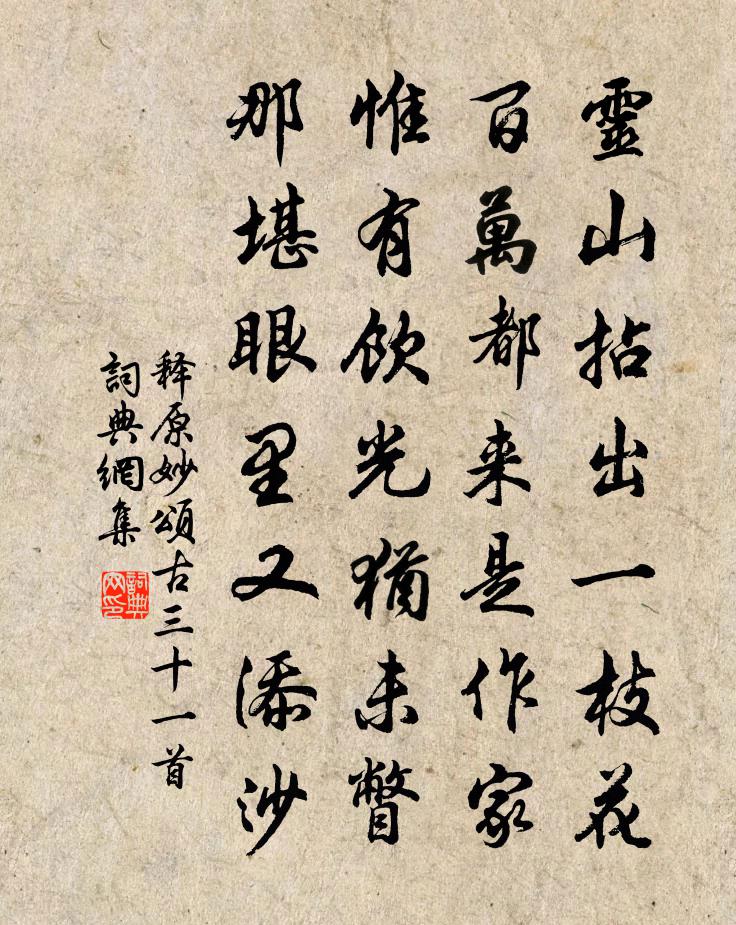 靈山拈出一枝花
百萬都来是作家
惟有飲光猶未瞥
那堪眼里又添沙
释原妙頌古三十一首
詞典網集
詞典网印